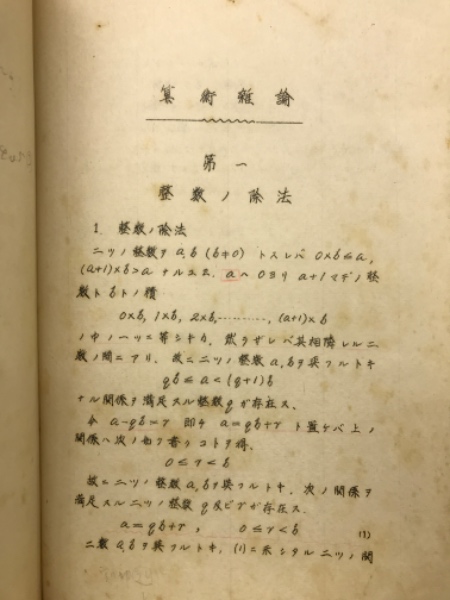 算術雑論
第一
整数ノ除法
1. 整数ノ除法
二ツノ整数ヲ a, b (b≠0) トスレバ 0×b≤a,
(a+1)×b>a ナルユエ, a ヘ 0 ヨリ a+1 マデノ整
数ト b トノ積
0×b, 1×b, 2×b, ………, (a+1)×b
ノ中ノ一ツニ等シキカ, 然ラザレバ其相隣レル二
数ノ間ニアリ. 故ニ二ツノ整数 a, b ヲ与フルトキ
qb≤a<(q+1)b
ナル関係ヲ満足スル整数 q ガ存在ス.
今 a-qb=r 即チ a=qb+r ト置ケバ上ノ
関係ハ次ノ如ク書クコトヲ得.
0≤r<b
故ニ二ツノ整数 a, b ヲ与フルトキ, 次ノ関係ヲ
満足スル二ツノ整数 q 及ビ r ガ存在ス.
a=qb+r, 0≤r<b (1)
二数 a, b ヲ与フルトキ, (1)ニ示シタル二ツノ関